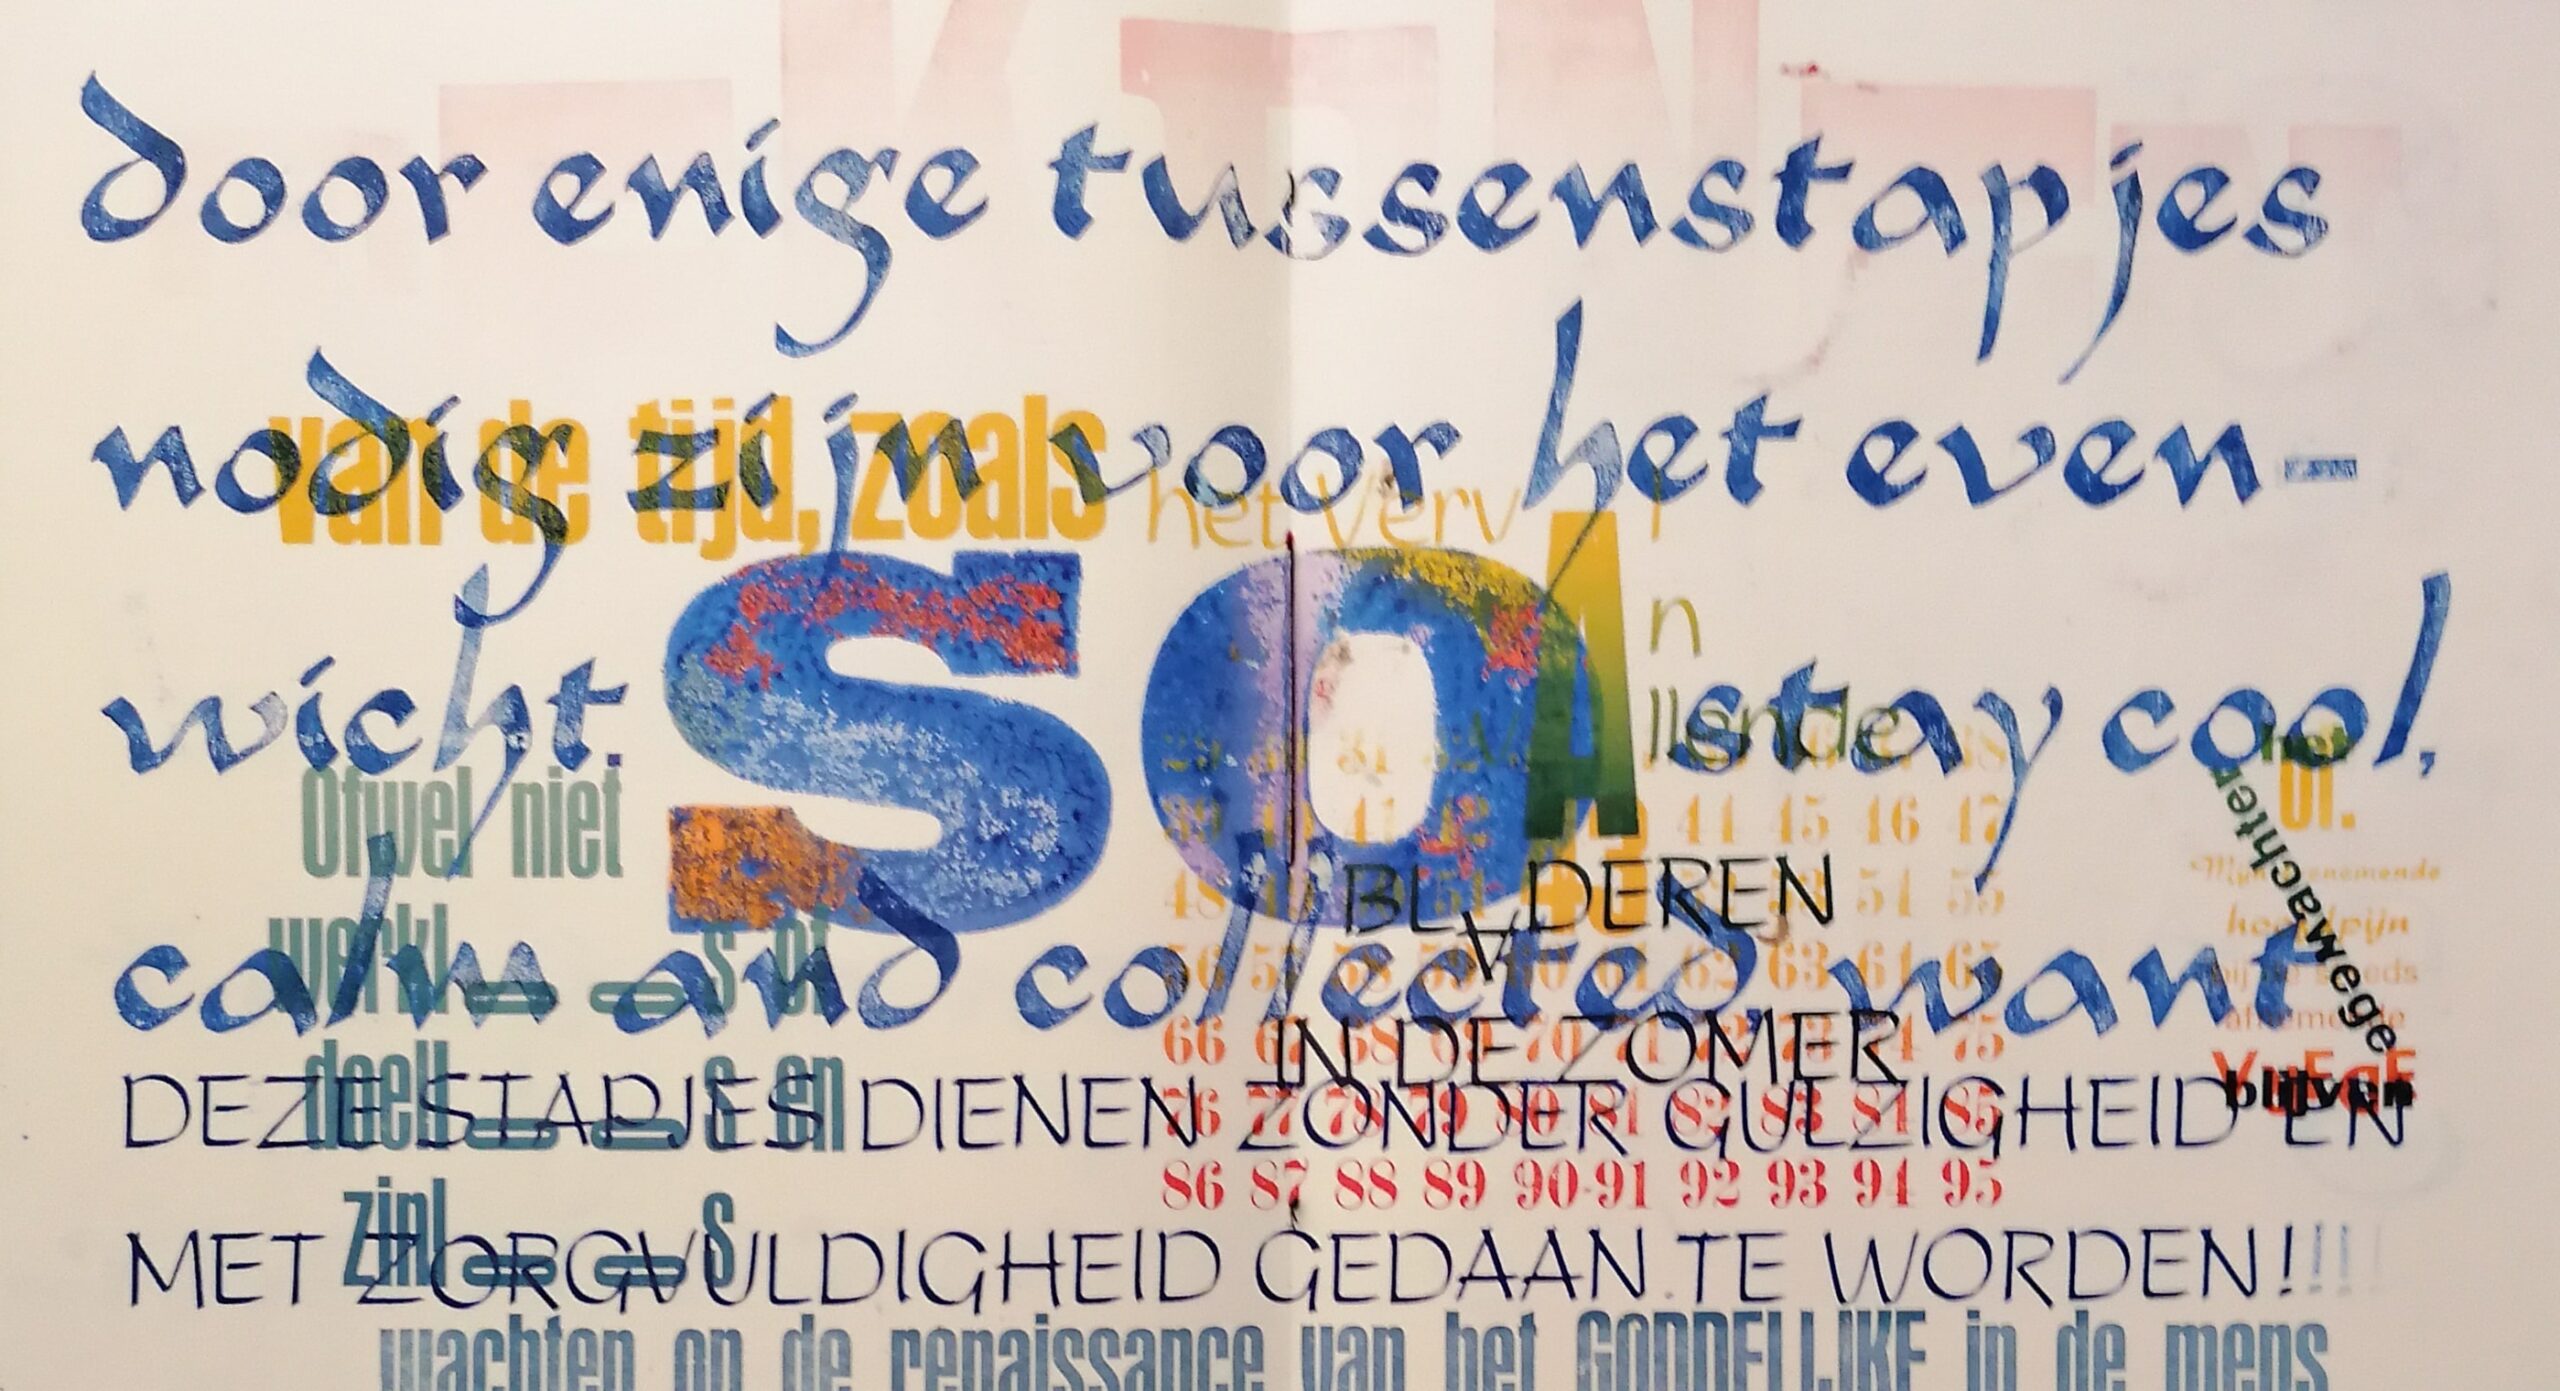 door enige tussenstapjes
nodig zijn voor het even-
van de tijd, zoals
het verv A l
n
llende
wicht. SO stay cool,
Ofwel niet
het
of.
achterwege
blijven
BLADEREN
calm and collected, want
hoofdpijn
IN DE ZOMER
DEZE STAPJES DIENEN ZONDER GULZIGHEID EN
MET ZORGVULDIGHEID GEDAAN TE WORDEN!!!!
44 45 46 47
48 54 55
56 57 58 59 60 61 62 63 64 65
66 67 68 69 70 71 72 73 74 75
76 77 78 79 80 81 82 83 84 85
86 87 88 89 90-91 92 93 94 95
werkl s of
deell s en
zinl s
wachten op de renaissance van het GODDELIJKE in de mens